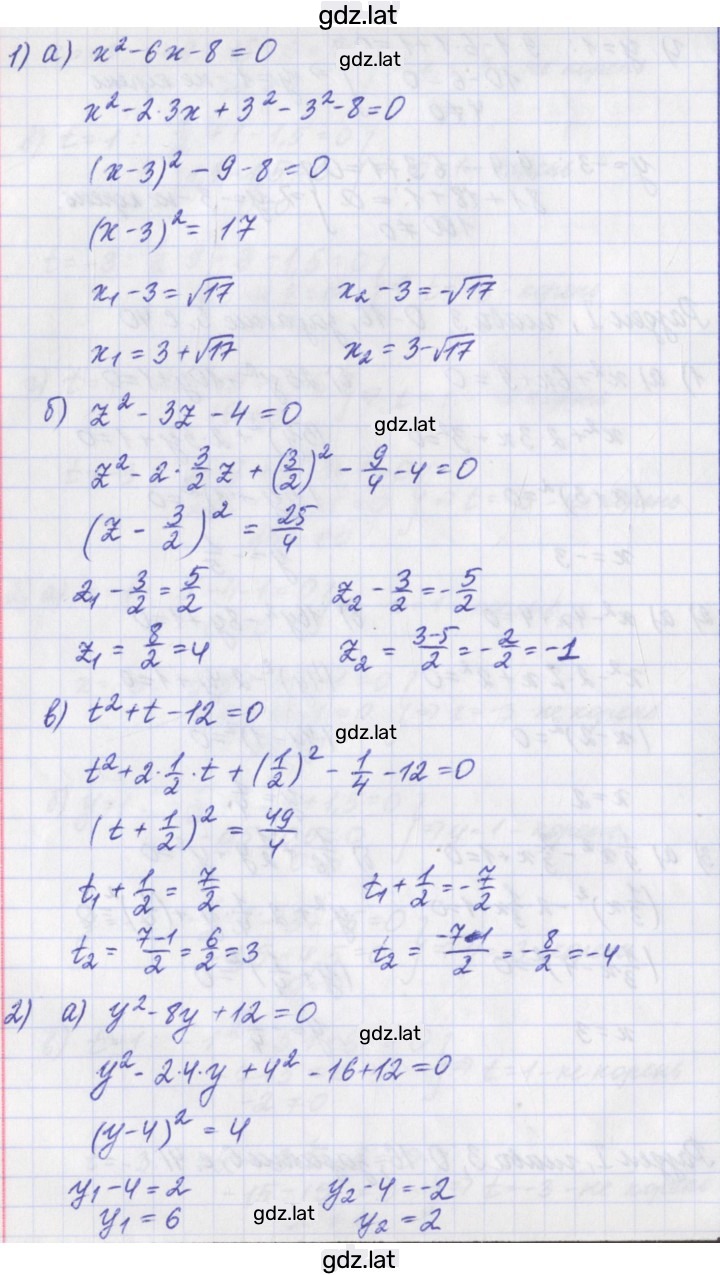 gdz.lat
1) а) x² - 6x - 8 = 0
x² - 2·3x + 3² - 3² - 8 = 0
(x - 3)² - 9 - 8 = 0
(x - 3)² = 17
x₁ - 3 = √17 x₂ - 3 = -√17
x₁ = 3 + √17 x₂ = 3 - √17
б) z² - 3z - 4 = 0
gdz.lat
z² - 2·3/2 z + (3/2)² - 9/4 - 4 = 0
(z - 3/2)² = 25/4
z₁ - 3/2 = 5/2 z₂ - 3/2 = -5/2
z₁ = 8/2 = 4 z₂ = (3-5)/2 = -2/2 = -1
в) t² + t - 12 = 0
gdz.lat
t² + 2·1/2·t + (1/2)² - 1/4 - 12 = 0
(t + 1/2)² = 49/4
t₁ + 1/2 = 7/2 t₁ + 1/2 = -7/2
t₂ = (7-1)/2 = 6/2 = 3 t₂ = (-7-1)/2 = -8/2 = -4
2) а) y² - 8y + 12 = 0
gdz.lat
y² - 2·4·y + 4² - 16 + 12 = 0
(y - 4)² = 4
y₁ - 4 = 2 y₂ - 4 = -2
y₁ = 6 gdz.lat y₂ = 2
gdz.lat